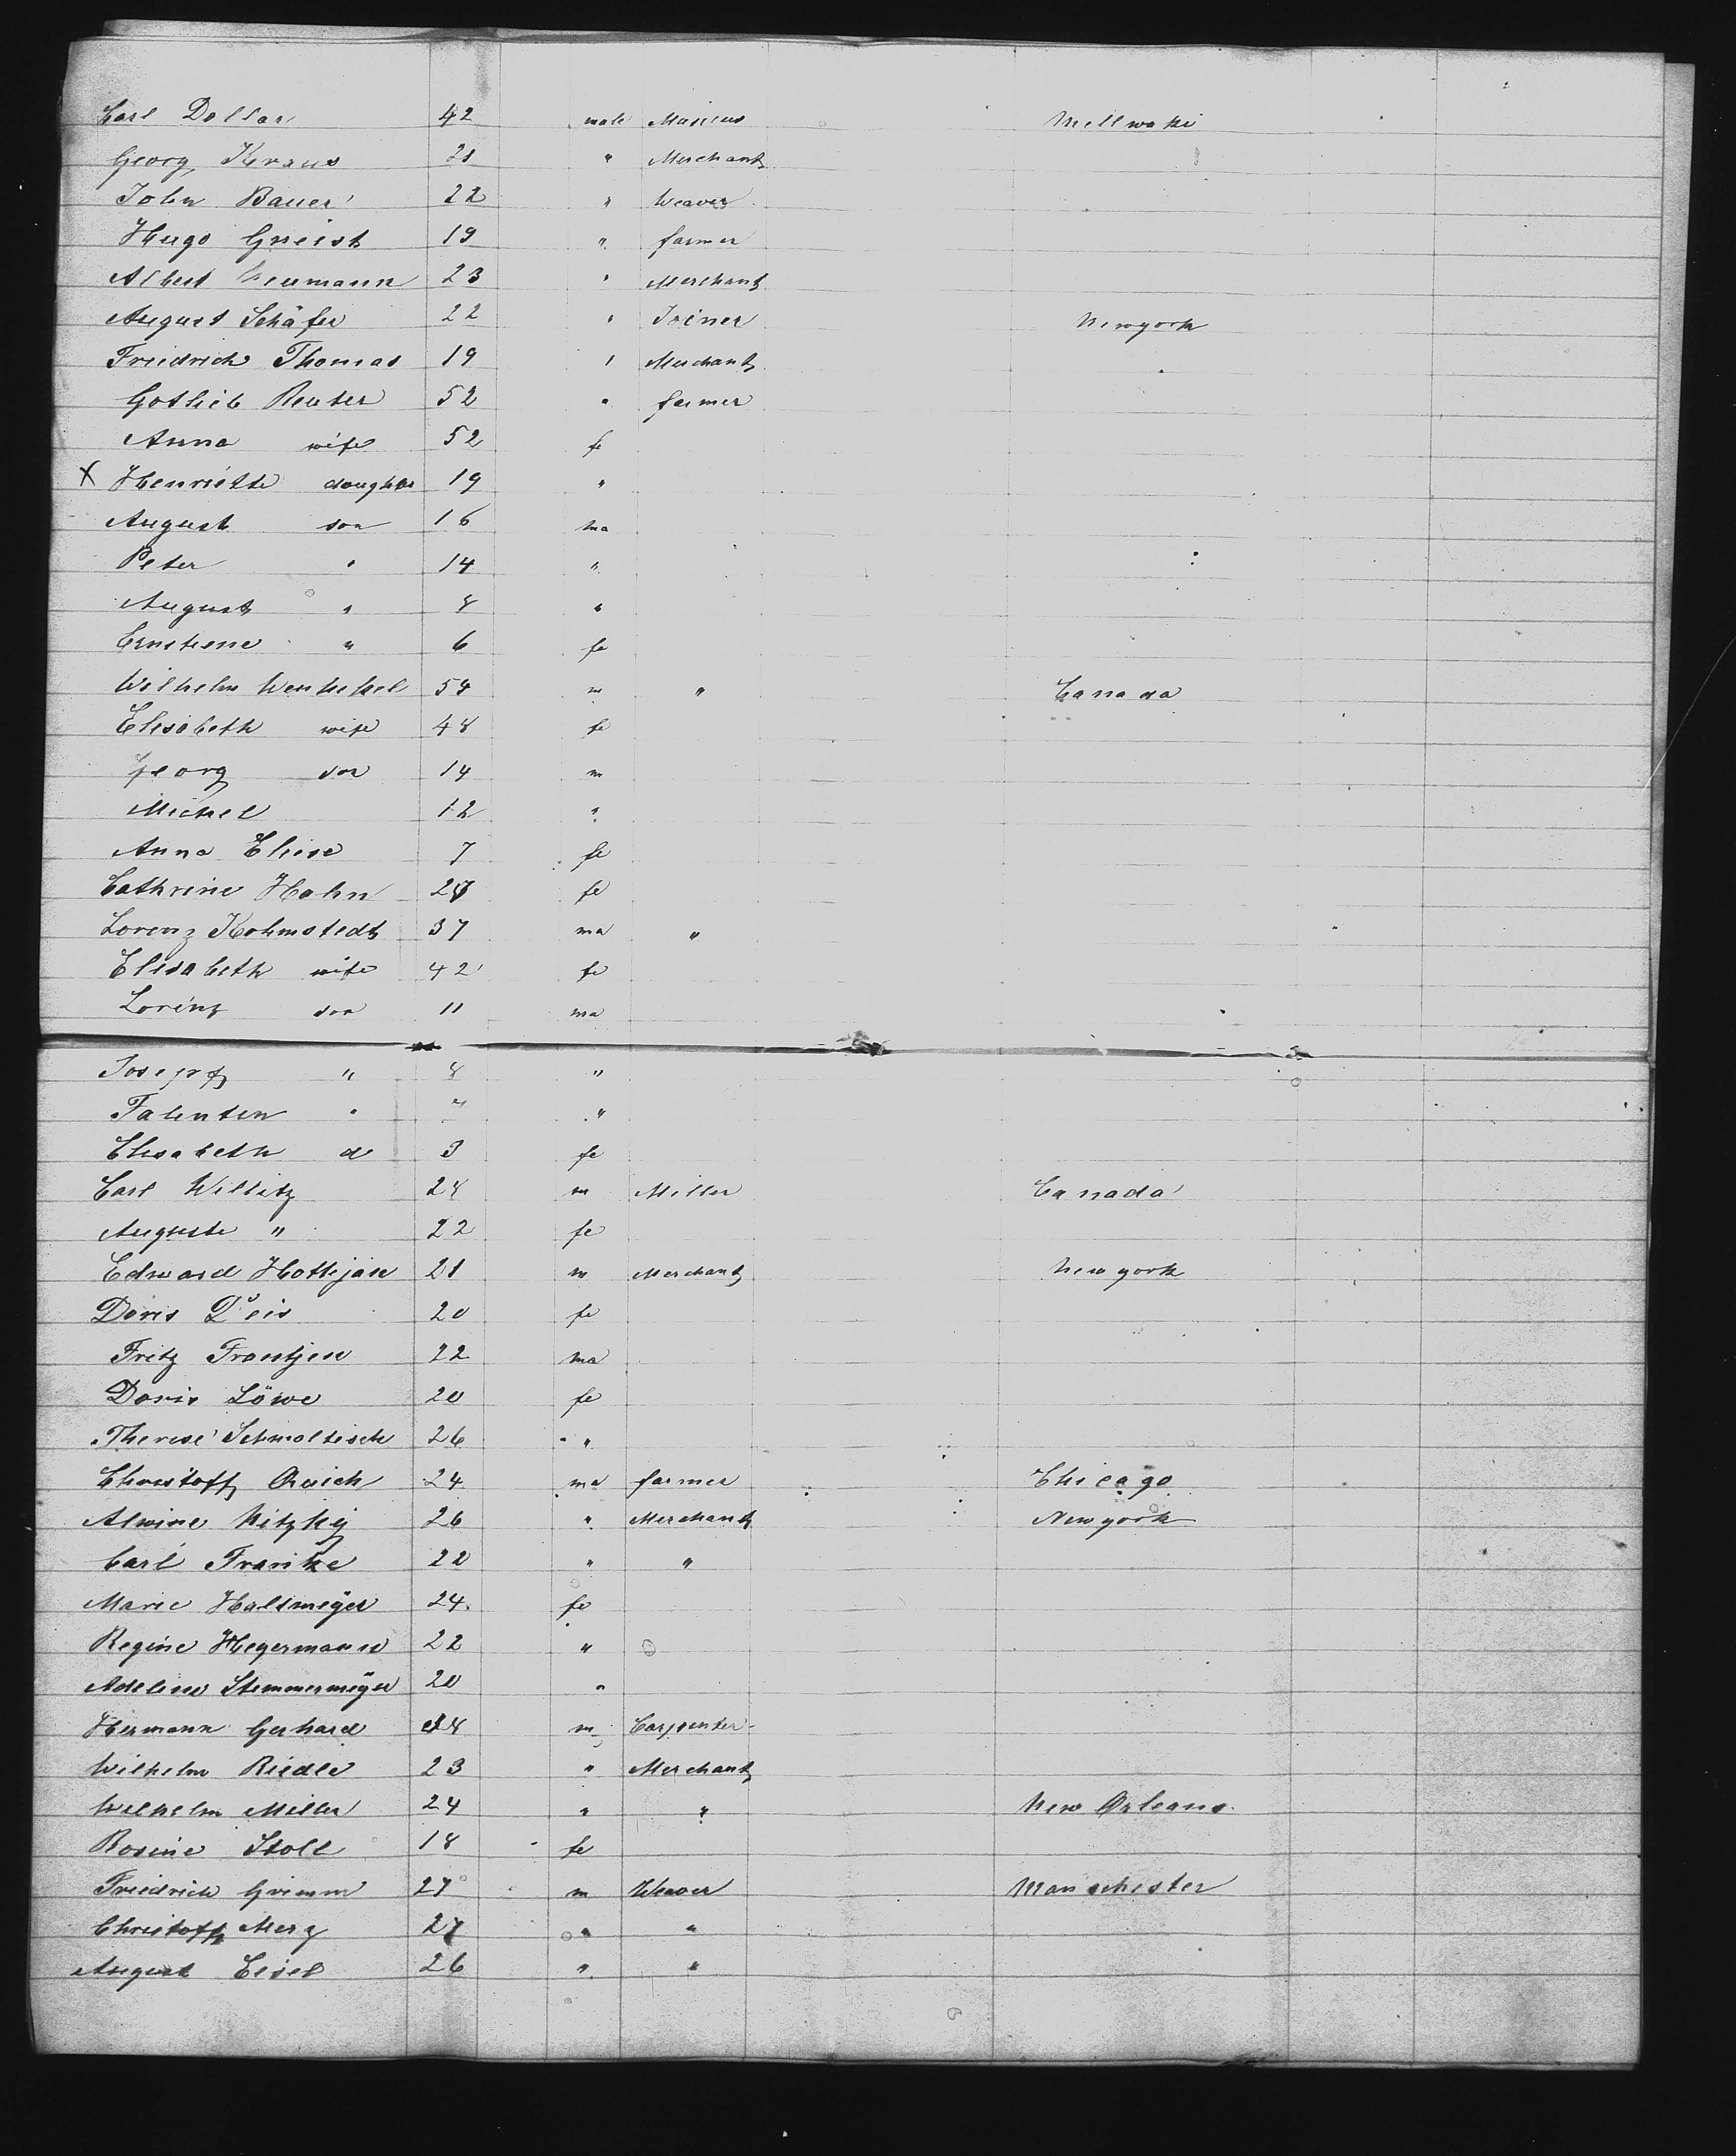 Carl Dollar 42 male Musicus Mellwaki
Georg Kraus 21 " Merchant
John Bauer 22 " Weaver
Hugo Gneist 19 " farmer
Albert Neumann 23 " Merchant
August Schäfer 22 " Joiner Newyork
Friedrich Thomas 19 " Merchant
Gotlieb Reuter 52 " farmer
Anna wife 52 fe
X Henriette daughter 19 "
August son 16 ma
Peter " 14 "
August " 8 "
Ernstiene " 6 fe
Wilhelm 54 m " Canada
Elisabeth wife 48 fe
Georg son 14 m
Michel 12 "
Anna Elise 7 fe
Cathrine Hahn 27 fe
Lorenz Kohmstedt 37 ma "
Elisabeth wife 42 fe
Lorenz son 11 ma
Joseph " 8 "
Falenten " 7 "
Elisabeth d 3 fe
Carl Willitz 28 m Miller Canada
Auguste " 22 fe
Edward Hottejan 21 m Merchant New york
Doris 20 fe
Fritz Frantjen 22 ma
Doris Löwe 20 fe
Therese Schmoltisch 26 "
Christoff 24 ma farmer Chicago
Alwine Nitzky 26 " Merchant New york
Carl Franke 22 " "
Marie Haltmeÿer 24 fe
Regine Hegermann 22 "
Adeline Stemmermeÿer 20 "
Hermann Gerhard 28 m Carpenter
Wilhelm Riedle 23 " Merchant
Wilhelm Miller 24 " " New Orleans
Rosine Stoll 18 fe
Friedrich Grimm 27 m Weaver Manschester
Christoff Merz 27 " "
August Eisel 26 " "